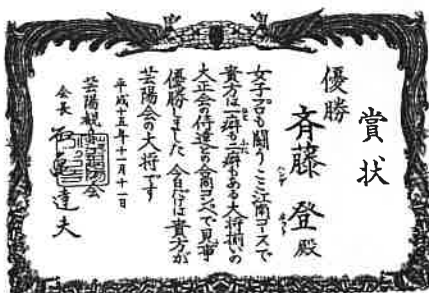 賞状
優勝
斉藤 登 殿
女子プロも闘うここ江南コースで
貴方は一癖も二癖もある大将揃いの
大正会の侍達との合同コンペで見事
優勝しました 今日だけは貴方が
芸陽会の大将です
平成十五年十一月十一日
芸陽観
会長 達夫